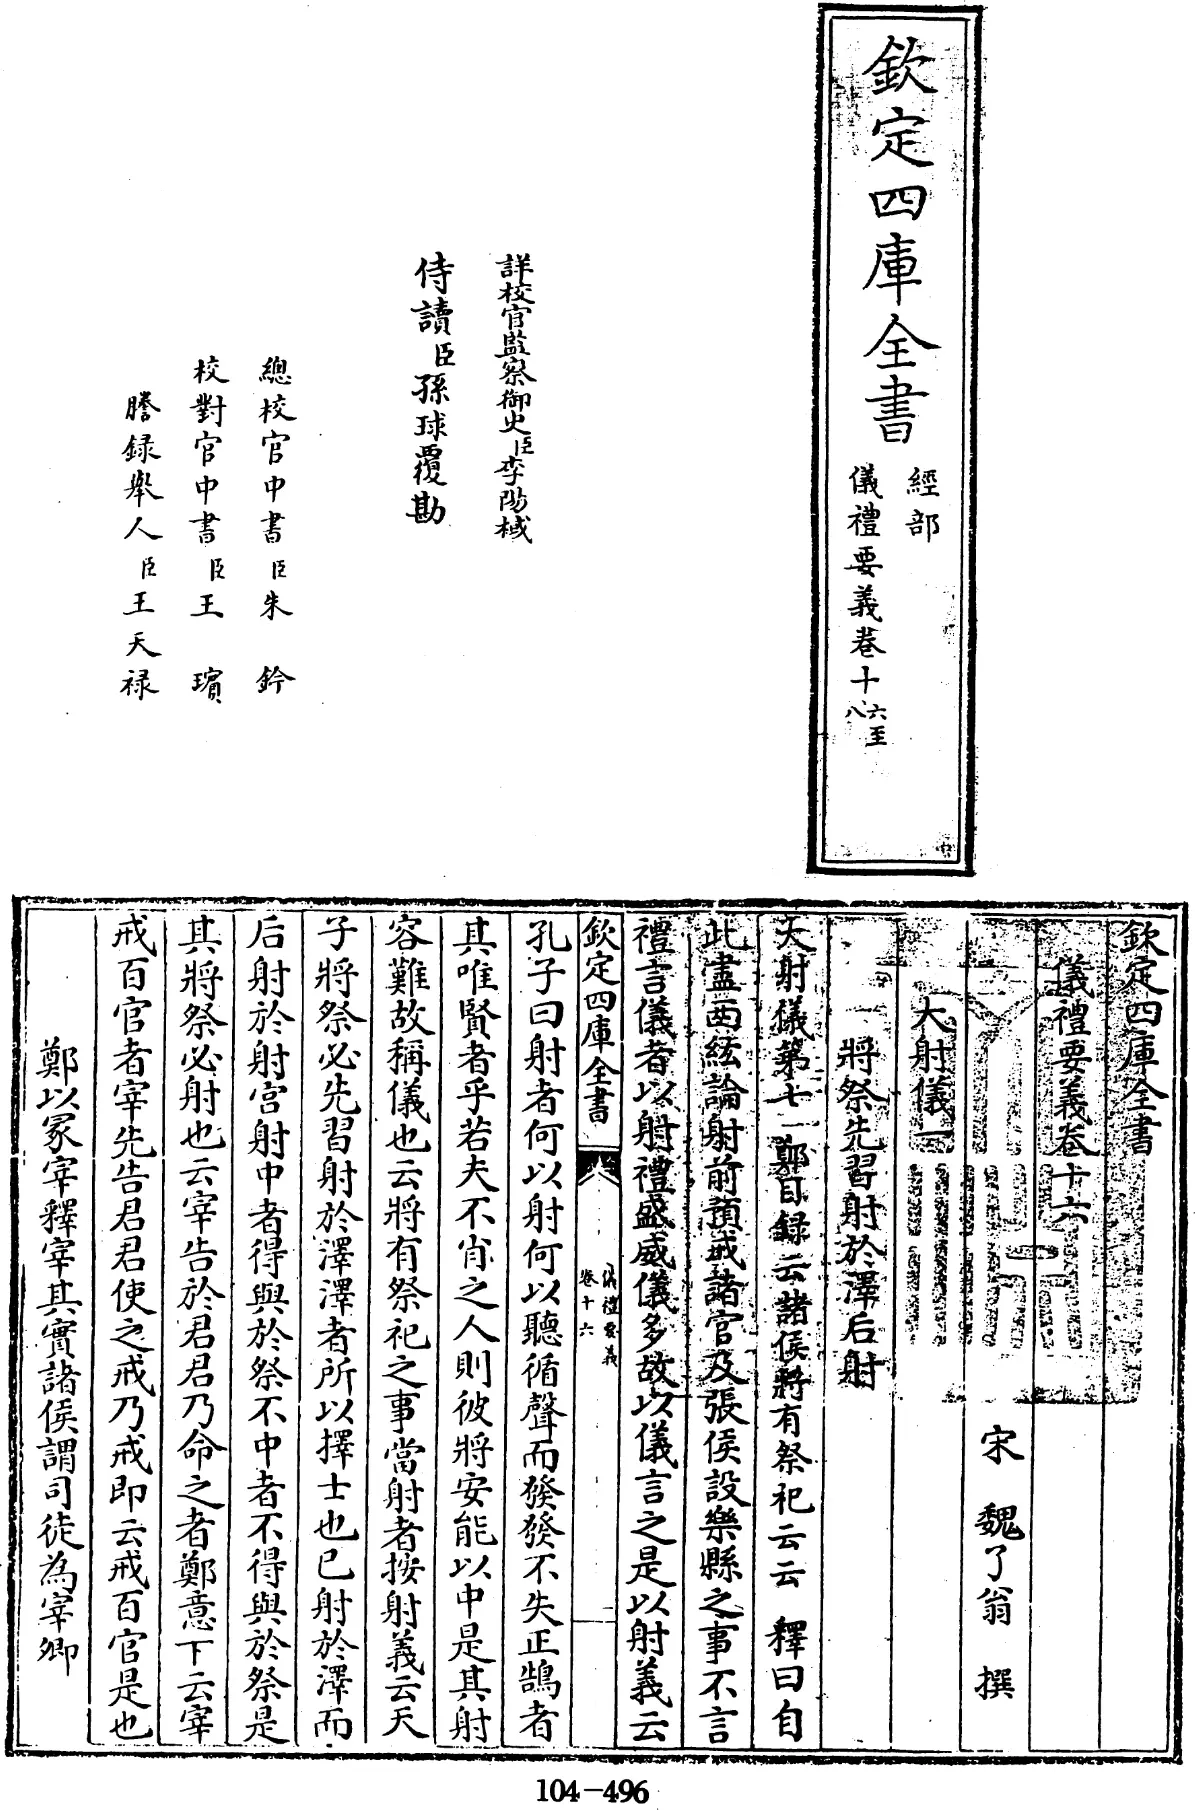 欽定四庫全書
經部
儀禮要義卷十六至
八
詳校官監察御史臣李陽棫
侍讀臣孫球覆勘
總校官中書臣朱鈐
校對官中書臣王璸
謄録舉人臣王天禄
欽定四庫全書
儀禮要義卷十六
宋魏了翁撰
大射儀一
將祭先習射於澤后射
大射儀第七鄭目録云諸侯將有祭祀云云釋曰自
此盡西紘論射前預戒諸官及張侯設樂縣之事不言
禮言儀者以射禮盛威儀多故以儀言之是以射義云
欽定四庫全書
儀禮要義
卷十六
一
孔子曰射者何以射何以聽循聲而發發不失正鵠者
其唯賢者乎若夫不肖之人則彼將安能以中是其射
容難故稱儀也云將有祭祀之事當射者按射義云天
子將祭必先習射於澤澤者所以擇士也已射於澤而
后射於射宫射中者得與於祭不中者不得與於祭是
其將祭必射也云宰告於君君乃命之者鄭意下云宰
戒百官者宰先告君君使之戒乃戒即云戒百官是也
鄭以冢宰釋宰其實諸侯謂司徒為宰卿
104-496